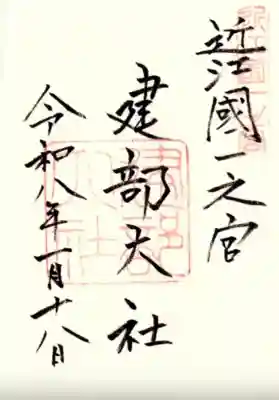 近江國一之宮
建部大社
令和八年一月十八日